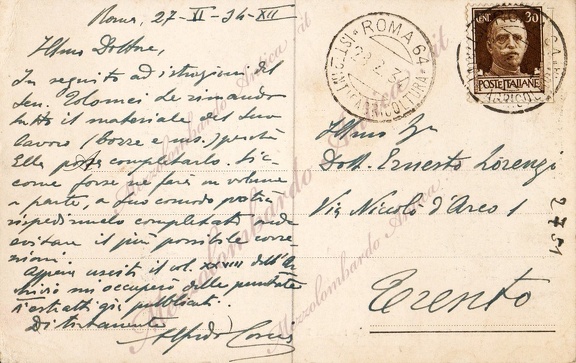 Roma, 27-II-34-XII
Ill.mo Dottore,
In seguito ad istruzioni del
Sen. Tolomei Le rimando
tutto il materiale del Suo
lavoro (bozze e ms.) perché
Ella possa completarlo. Sic-
come forse ne farà un volume
a parte, a Suo comodo potrà
rispedircelo completato onde
evitare il più possibile corre-
zioni.
Appena uscirà il vol. XXVIII dell'Ar-
chivio mi occuperò delle
estratti già pubblicati.
Distintamente
Alfredo
ROMA 64
CENT. 30
POSTE ITALIANE
Ill.mo Sr
Dott. Ernesto Lorenzi
Via Niccolò d'Arco 1
Trento
2751
Mezzolombardo Antica.it